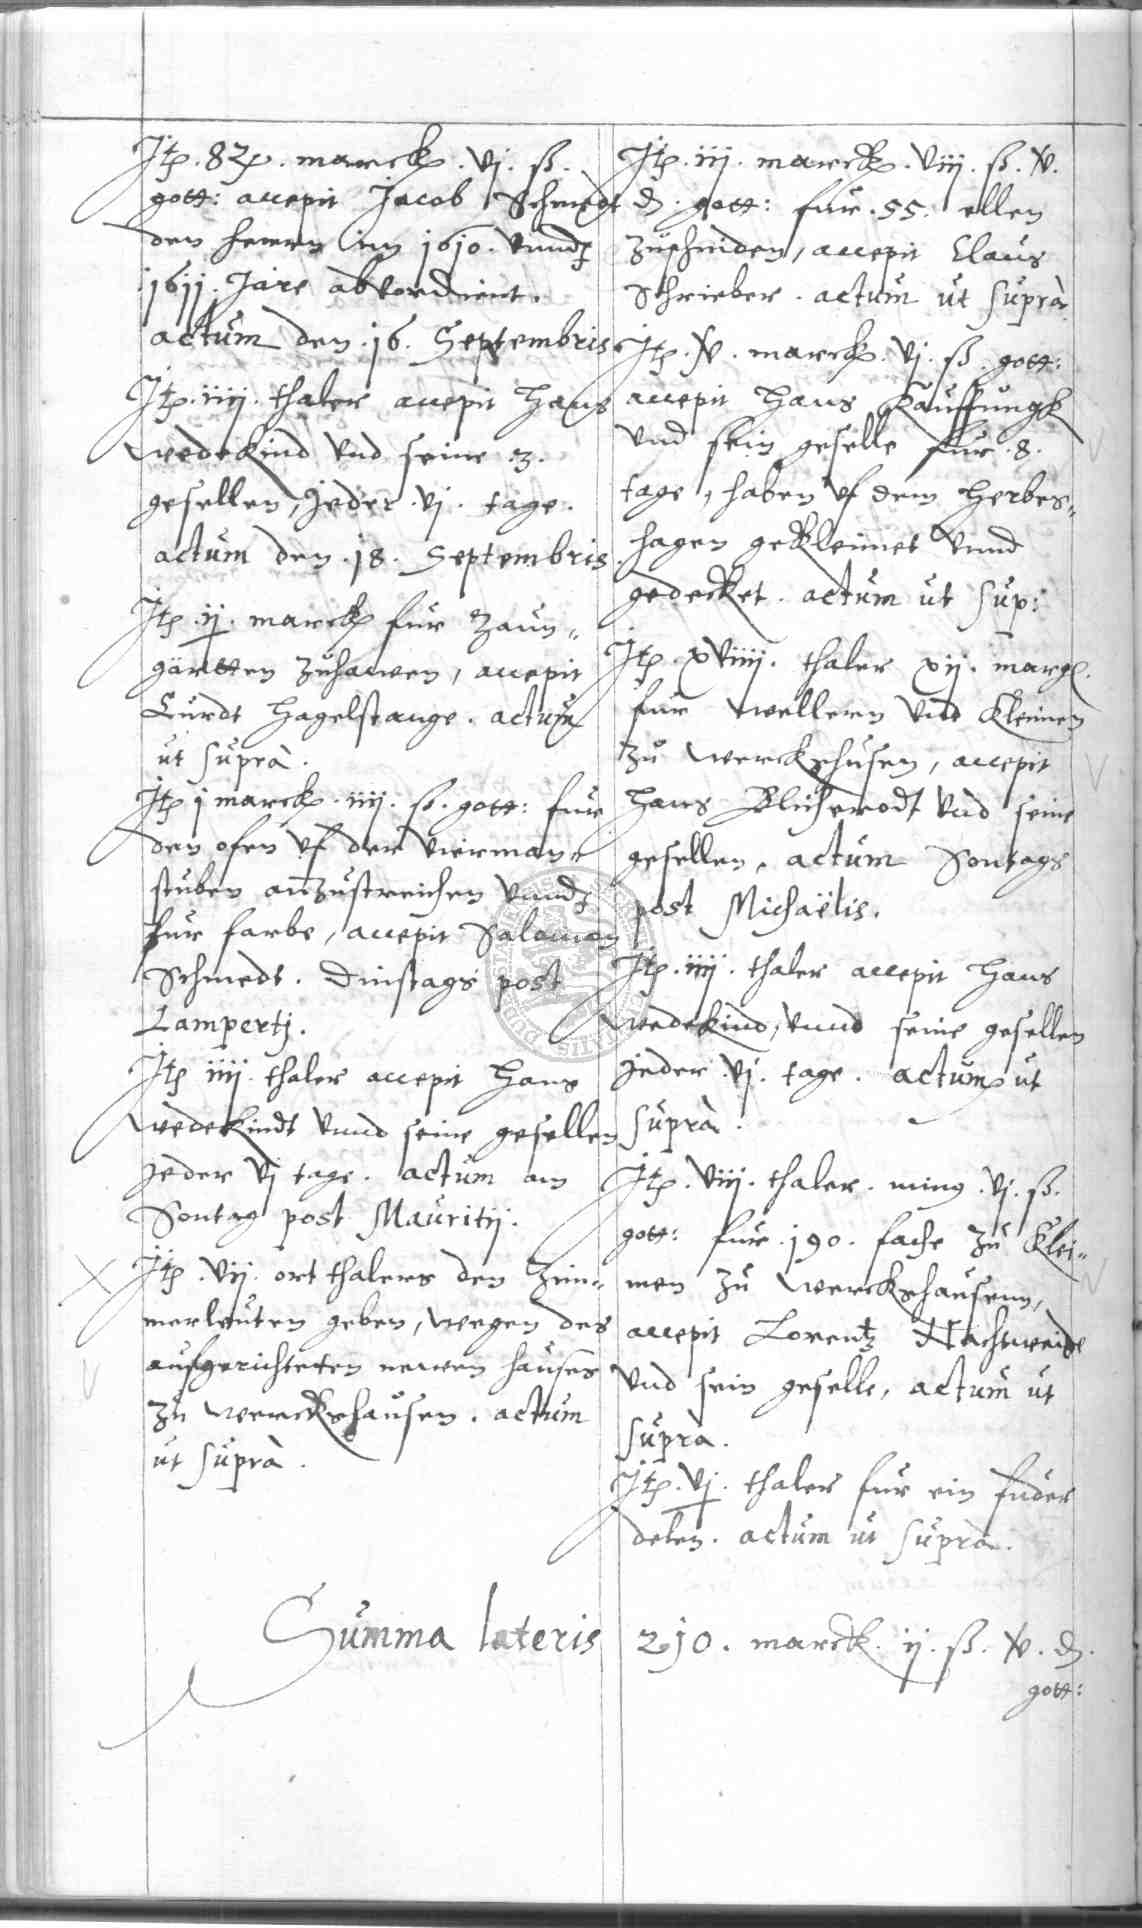 Jtem . 82 . marck . vj . ß .
gott: accepit Jacob Schmedt
den herrn im 1610. vnnd
1611. Jare abverdient.
actum den . 16. Septembris
Jtem . iiij . thaler accepit Hans
Wedekind vnd seine 3.
gesellen, Jeder . vj . tage.
actum den . 18. Septembris.
Jtem . ij . marck fur Zaun„
gärtten zuhawen, accepit
Curdt Hagelstange . actum
ut suprà.
Jtem j marck . iiij . ß . gott: fur
den ofen vf der vierman„
stuben anzustreichen vnnd
fur farbe, accepit Salomon
Schmedt . Dinstags post
Lampertj.
Jtem iiij . thaler accepit Hans
Wedekindt vnnd seine gesellen
jeder vj tage . actum am
Sontag post Mauritij.
Jtem . vij . ort thalers den Zim„
merleuten geben, wegen des
aufgerichteten newen hauses
zu Werckshausen . actum
ut suprà .
Jtem . iij . marck . viij . ß . v .
d . gott: fur . 55. ellen
accepit Claus
Schrieber . actum ut suprà
Jtem . v . marck . vj . ß . gott:
accepit Hans Kauffungk
vnd sein geselle fur . 8.
tage, haben vf dem Herbes„
hagen gekleimet vnnd
gedecket . actum ut sup:
Jtem . xviiij . thaler xij . marck
fur wellern vnd kleimen
zu Werckshusen, accepit
Hans Blicherodt vnd seine
gesellen, actum Sontags
post Michaëlis.
Jtem . iiij . thaler accepit Hans
Wedekind, vnnd seine gesellen
jeder . vj . tage . actum ut
suprà .
Jtem . viij . thaler . minus . vj . ß .
gott: fur . 190. fache zu klei„
men zu Werckshausenn,
accepit Lorentz Nachtweide
vnd sein geselle, actum ut
suprà.
Jtem . vj . thaler fur ein fuder
delen . actum ut suprà .
Summa lateris 210 . marck . ij . ß . v . d .
gott: